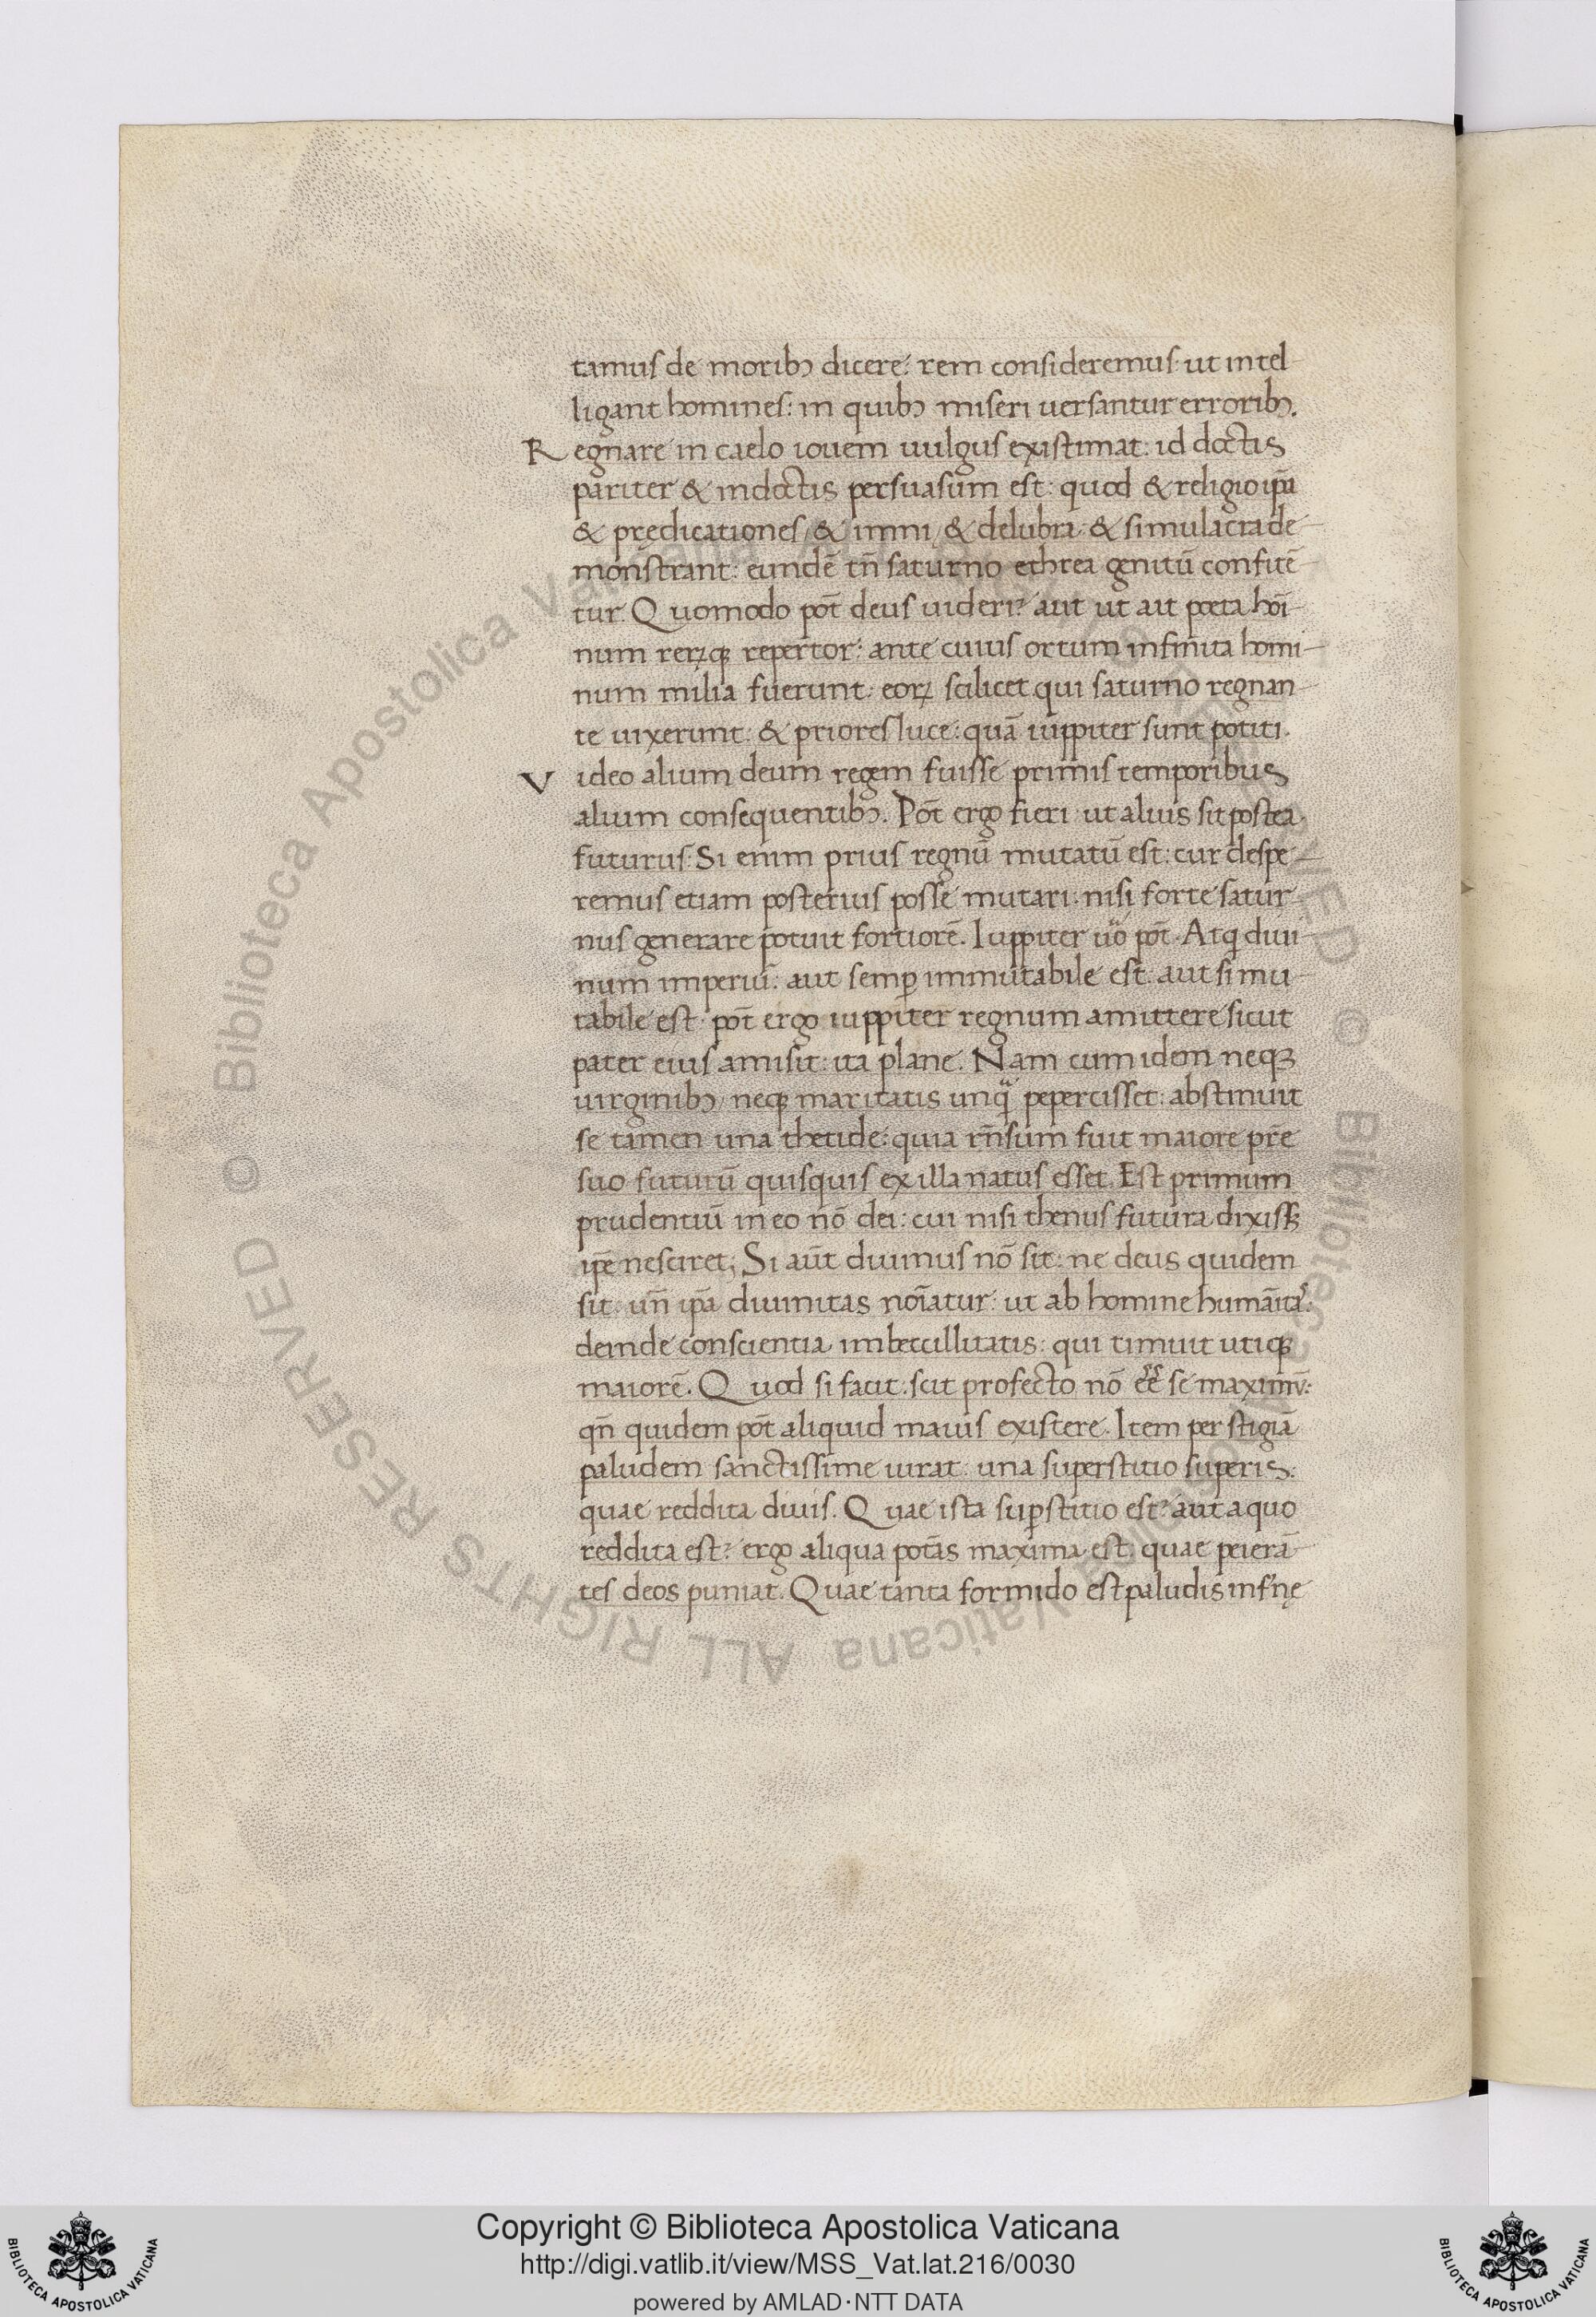 tamus de moribꝫ dicere: rem consideremus: ut intel
ligant homines: in quibꝫ miseri uersantur erroribꝫ.
Regnare in caelo iouem uulgus existimat: id doctis
pariter & indoctis persuasum est: quod & religio ip̄a
& prędicationes/ & imni/ & delubra & simulacra de
monstrant: eundē tn̄ saturno & rhea genitū confitē
tur. Quomodo pōt deus uideri? aut ut ait poeta hoī
num rerꝝqꝫ repertor: ante cuius ortum infinita homi
num milia fuerunt: eorꝝ scilicet qui saturno regnan
te uixerunt: & priores luce: quā iuppiter sunt potiti.
Video alium deum regem fuisse primis temporibus
alium consequentibꝫ. Pōt ergo fieri ut alius sit postea
futurus. Si enim prius regnū mutatū est: cur despe
remus etiam posterius posse mutari: nisi forte satur
nus generare potuit fortiorē. Iuppiter ūo pōt. Atq diui
num imperiū: aut semꝑ immutabile est: aut si mu
tabile est pōt ergo iuppiter regnum amittere sicut
pater eius amisit: ita plane. Nam cum idem neqꝫ
uirginibꝫ/ neqꝫ maritatis unq̄ pepercisset: abstinuit
se tamen una thetide: quia rn̄sum fuit maiore pr̄e
suo futurū quisquis ex illa natus esset. Est primum
prudentiū in eo nō dei: cui nisi themis futura dixissꝫ
ip̄e nesciret; Si aūt diuinus nō sit: ne deus quidem
sit: un̄ ip̄a diuinitas noīatur: ut ab homine humāitaˢ:
deinde conscientia imbecillitatis: qui timuit utiqꝫ
maiorē. Quod si facit: scit profecto nō eē se maximū:
qn̄ quidem pōt aliquid maius existere. Item per stigiā
paludem sanctissime iurat: una superstitio superis:
quae reddita diuis. Quae ista suꝑstitio est? aut a quo
reddita est? ergo aliqua potās maxima est quae peierā
tes deos puniat. Quae tanta formido est paludis inf'nę
Copyright © Biblioteca Apostolica Vaticana
http://digi.vatlib.it/view/MSS_Vat.lat.216/0030
powered by AMLAD·NTT DATA
BIBLIOTECA APOSTOLICA VATICANA
BIBLIOTECA APOSTOLICA VATICANA
© Biblioteca Apostolica Vaticana ALL RIGHTS RESERVED © Biblioteca Apostolica Vaticana ALL RIGHTS RESERVED